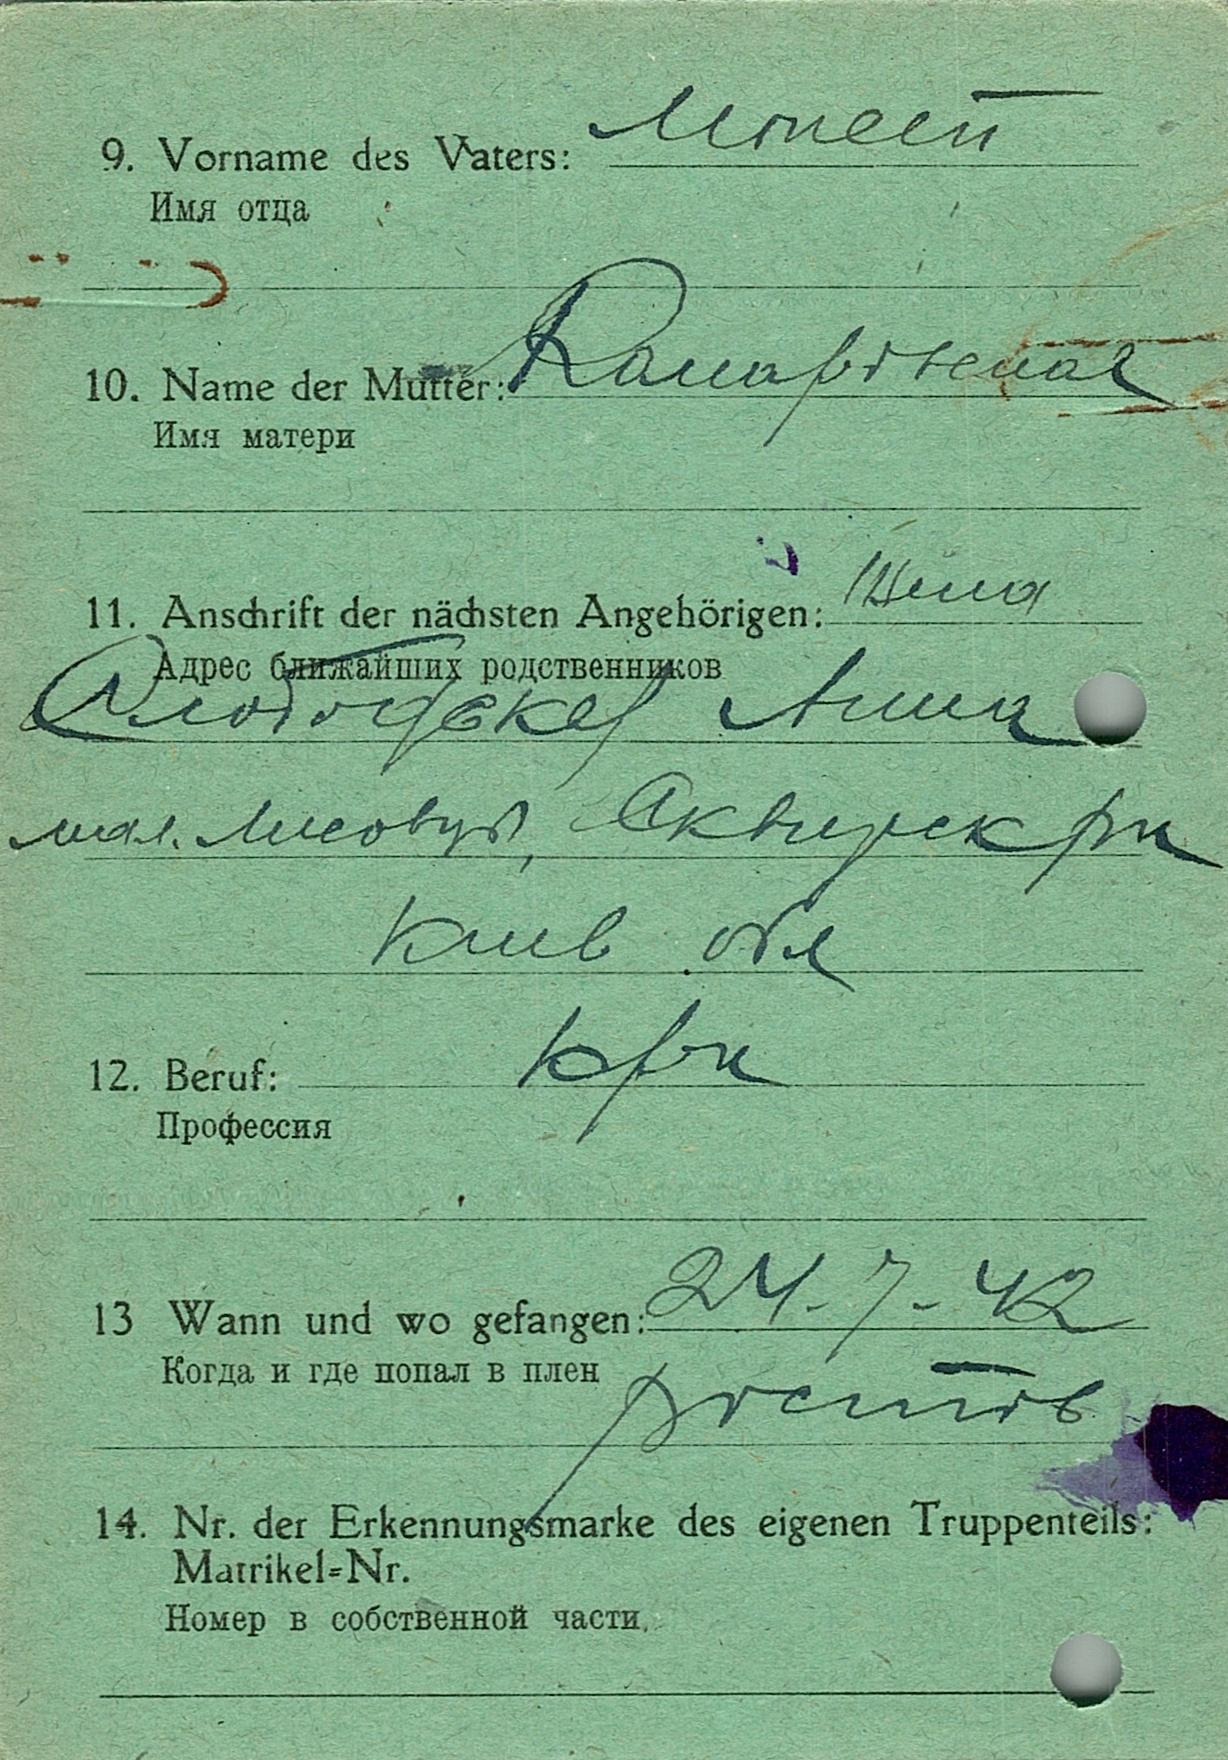 9. Vorname des Vaters: Мопсей
Имя отца
10. Name der Mutter:
Имя матери
11. Anschrift der nächsten Angehörigen: Жена
Адрес ближайших родственников
Анна
Сквирск рн
Киев обл
12. Beruf:
Профессия
13 Wann und wo gefangen: 24-7-42
Когда и где попал в плен
Ростов
14. Nr. der Erkennungsmarke des eigenen Truppenteils:
Matrikel-Nr.
Номер в собственной части